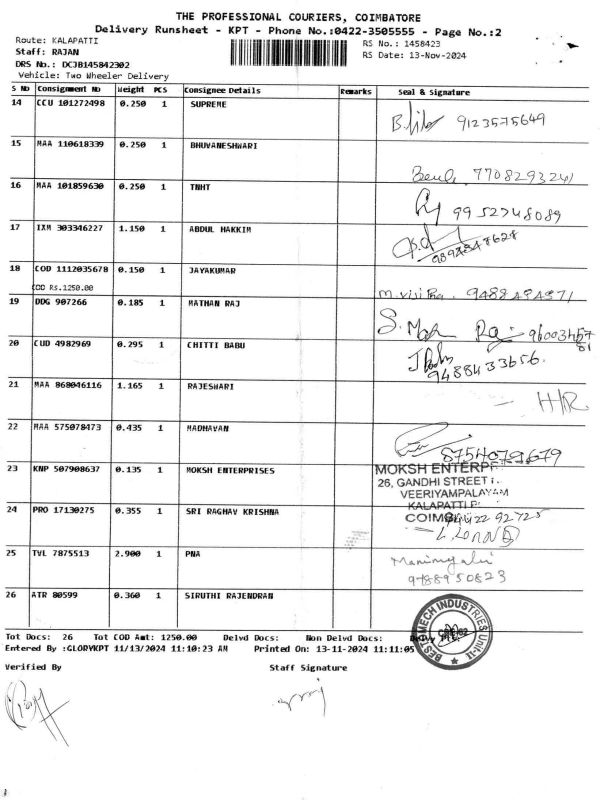 THE PROFESSIONAL COURIERS, COIMBATORE
Delivery Runsheet - KPT - Phone No.:0422-3505555 - Page No.:2
Route: KALAPATTI RS No.: 1458423
Staff: RAJAN RS Date: 13-Nov-2024
DRS No.: DCJB145842302
Vehicle: Two Wheeler Delivery
S No Consignment No Weight PCS Consignee Details Remarks Seal & Signature
14 CCU 101272498 0.250 1 SUPREME
9123575649
15 MAA 110618339 0.250 1 BHUVANESHWARI
7708293241
16 MAA 101859630 0.250 1 TNHT
9952748089
17 IXM 303346227 1.150 1 ABDUL HAKKIM
18 COD 1112035678 0.150 1 JAYAKUMAR
COD Rs.1250.00
19 DDG 907266 0.185 1 MATHAN RAJ
S.
20 CUD 4982969 0.295 1 CHITTI BABU
9488433656.
21 MAA 868046116 1.165 1 RAJESWARI
- H/R
22 MAA 575078473 0.435 1 MADHAVAN
8754079679
23 KNP 507908637 0.135 1 MOKSH ENTERPRISES
MOKSH ENTERPR
26, GANDHI STREET
VEERIYAMPALAYAM
KALAPATTI
24 PRO 17130275 0.355 1 SRI RAGHAV KRISHNA
25 TVL 7875513 2.900 1 PNA
9788950823
26 ATR 80599 0.360 1 SIRUTHI RAJENDRAN
BEST MECH INDUSTRIES Unit-II
Tot Docs: 26 Tot COD Amt: 1250.00 Delvd Docs: Non Delvd Docs:
Entered By :GLORYKPT 11/13/2024 11:10:23 AM Printed On: 13-11-2024 11:11:05
Verified By Staff Signature